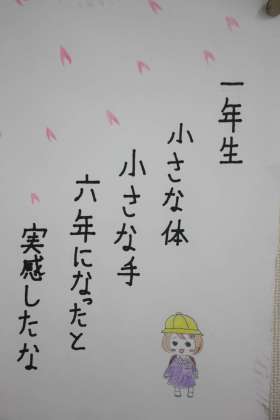 一年生
小さな体
小さな手
六年になったと
実感したな